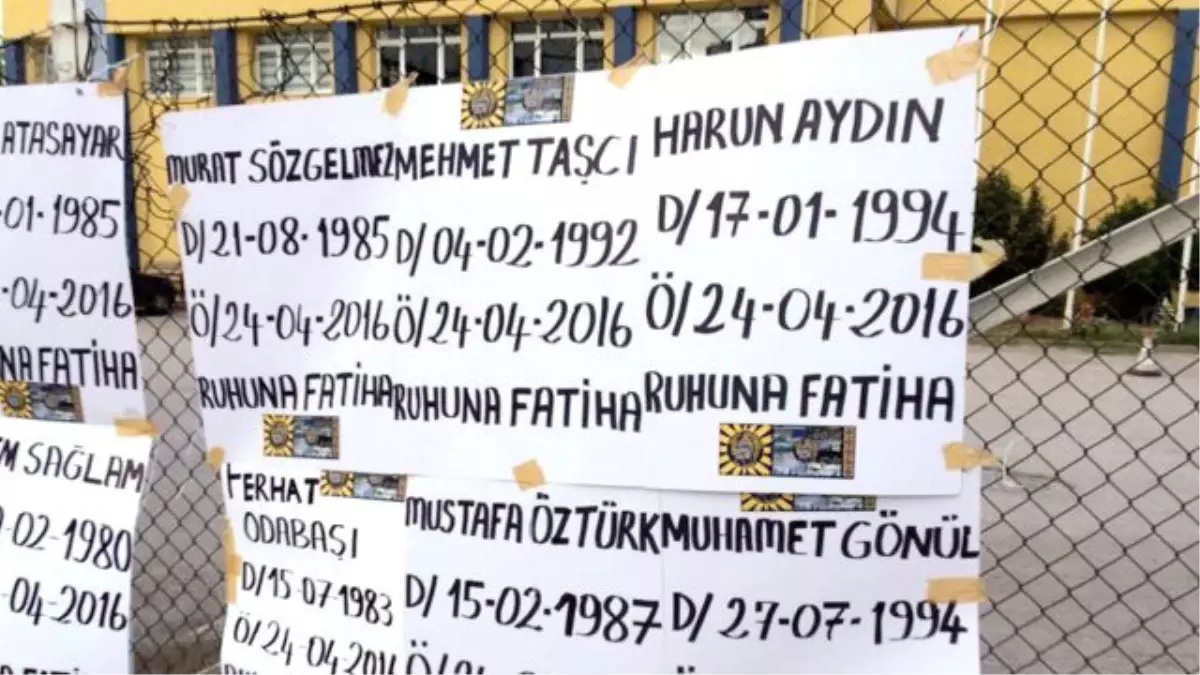 ATASAYAR
-01-1985
-04-2016
NA FATİHA
MURAT SÖZGELMEZ
D/21-08-1985
Ö/24-04-2016
RUHUNA FATİHA
MEHMET TAŞCI
D/04-02-1992
Ö/24-04-2016
RUHUNA FATİHA
HARUN AYDIN
D/17-01-1994
Ö/24-04-2016
RUHUNA FATİHA
M SAĞLAM
-02-1980
-04-2016
FATİHA
FERHAT
ODABAŞI
D/15-07-1983
Ö/24-04-2016
MUSTAFA ÖZTÜRK
D/15-02-1987
MUHAMET GÖNÜL
D/27-07-1994